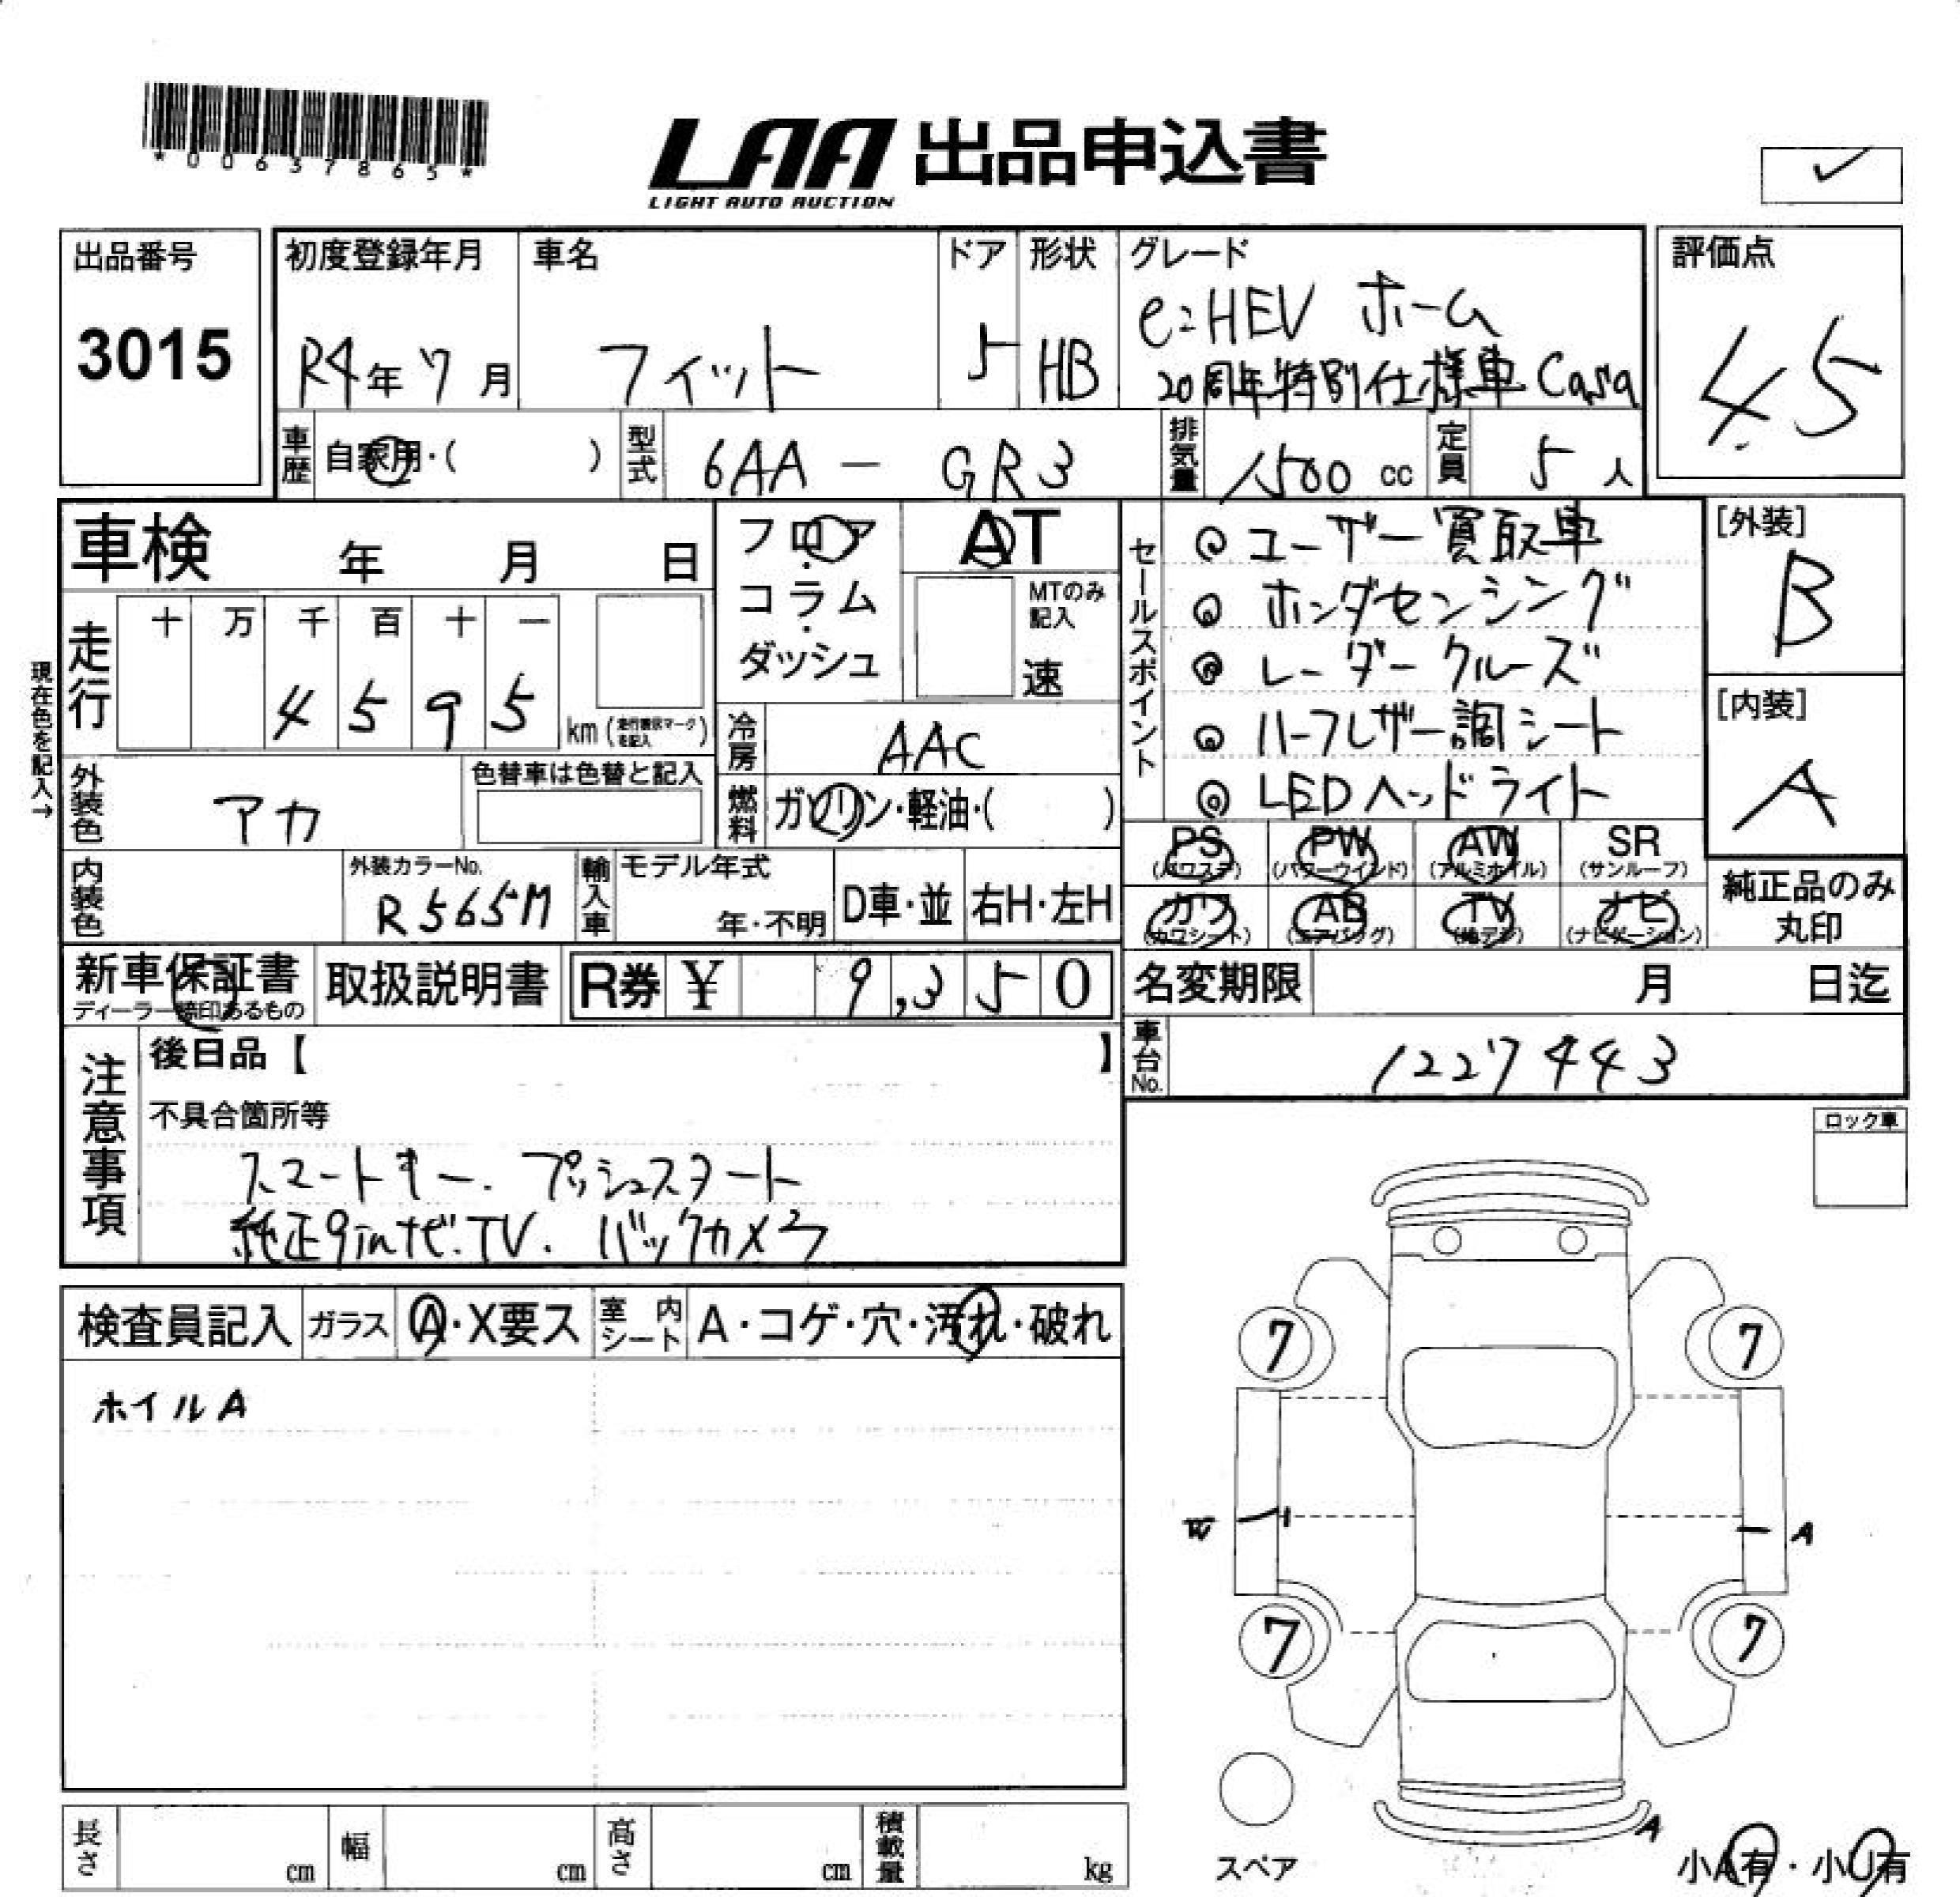 *00637865*
LAA 出品申込書
LIGHT AUTO AUCTION
出品番号
3015
初度登録年月
R4年7月
車名
フィット
ドア
5
形状
HB
グレード
e:HEV ホーム
20周年特別仕様車 Casa
評価点
4.5
車歴
自家用・( )
型式
6AA - GR3
排気量
1500 cc
定員
5 人
車検 年 月 日
現在色を記入→
走行
十 万 千 百 十 一
4 5 9 5
km (走行表示マークを記入)
外装色
アカ
色替車は色替と記入
内装色
外装カラーNo.
R565M
輸入車
モデル年式
年・不明
D車・並
右H・左H
フロア
・
コラム
・
ダッシュ
AT
MTのみ
記入
速
冷房
AAC
燃料
ガソリン・軽油・( )
セールスポイント
◎ユーザー買取車
◎ホンダセンシング
◎レーダークルーズ
◎ハーフレザー調シート
◎LEDヘッドライト
[外装]
B
[内装]
A
PS
(パワステ)
PW
(パワーウインド)
AW
(アルミホイル)
SR
(サンルーフ)
カワ
(カワシート)
AB
(エアバッグ)
TV
(地デジ)
ナビ
(ナビゲーション)
純正品のみ
丸印
新車保証書
ディーラー捺印あるもの
取扱説明書
R券 ¥ 9,350
名変期限 月 日迄
車台No.
1227443
注意事項
後日品【 】
不具合箇所等
スマートキー.プッシュスタート
純正9inナビ.TV.バックカメラ
ロック車
検査員記入
ガラス
A・X要ス
室内シート
A・コゲ・穴・汚れ・破れ
ホイルA
7
7
W
A
7
7
A
スペア
小A有・小U有
長さ cm
幅 cm
高さ cm
積載量 kg